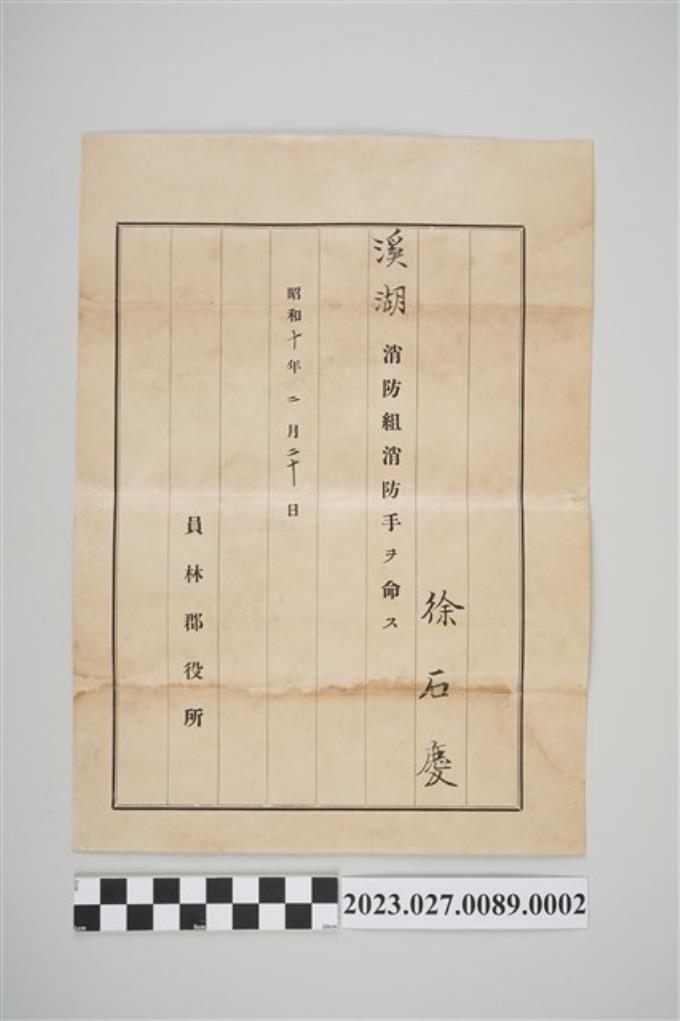 徐石慶
溪湖消防組消防手ヲ命ス
昭和十年二月二十日
員林郡役所
2023.027.0089.0002